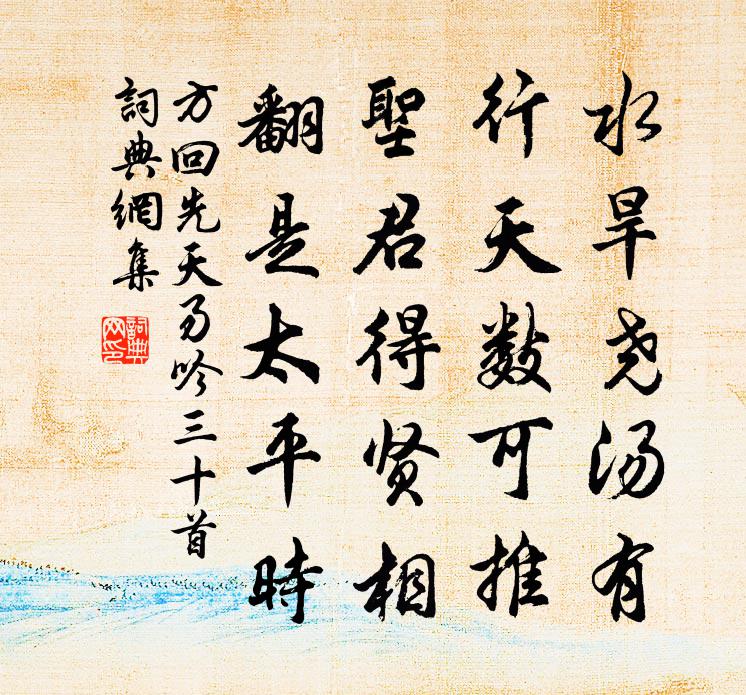 水旱尧汤有
行天数可推
聖君得贤相
翻是太平時
方回先天易吟三十首
詞典網集
詞典
网印